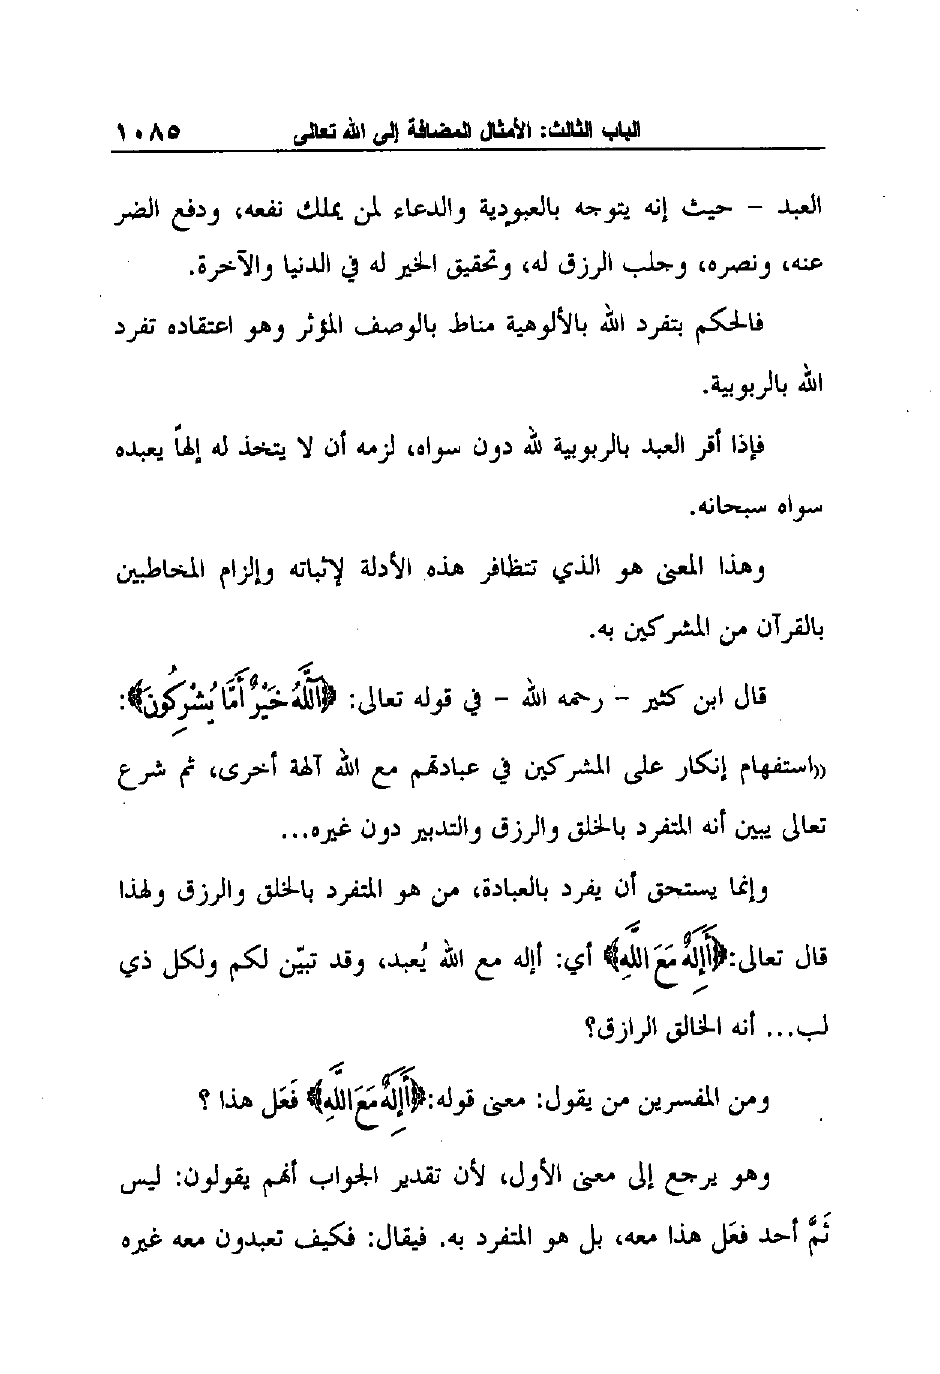 الباب الثالث: الأمثال المضافة إلى الله تعالى ١٠٨٥
العبد – حيث إنه يتوجه بالعبودية والدعاء لمن يملك نفعه، ودفع الضر
عنه، ونصره، وجلب الرزق له، وتحقيق الخير له في الدنيا والآخرة.
فالحكم بتفرد الله بالألوهية مناط بالوصف المؤثر وهو اعتقاده تفرد
الله بالربوبية.
فإذا أقر العبد بالربوبية لله دون سواه، لزمه أن لا يتخذ له إلهاً يعبده
سواه سبحانه.
وهذا المعنى هو الذي تتظافر هذه الأدلة لإثباته وإلزام المخاطبين
بالقرآن من المشركين به.
قال ابن كثير – رحمه الله – في قوله تعالى: ﴿ءَآللَّهُ خَيْرٌ أَمَّا يُشْرِكُونَ﴾:
((استفهام إنكار على المشركين في عبادتهم مع الله آلهة أخرى، ثم شرع
تعالى يبين أنه المتفرد بالخلق والرزق والتدبير دون غيره...
وإنما يستحق أن يفرد بالعبادة، من هو المتفرد بالخلق والرزق ولهذا
قال تعالى:﴿أَإِلَٰهٌ مَّعَ اللَّهِ﴾ أي: أإله مع الله يُعبد، وقد تبيّن لكم ولكل ذي
لب... أنه الخالق الرازق؟
ومن المفسرين من يقول: معنى قوله:﴿أَإِلَٰهٌ مَّعَ اللَّهِ﴾ فَعَل هذا ؟
وهو يرجع إلى معنى الأول، لأن تقدير الجواب أنهم يقولون: ليس
ثَمَّ أحد فعَل هذا معه، بل هو المتفرد به. فيقال: فكيف تعبدون معه غيره